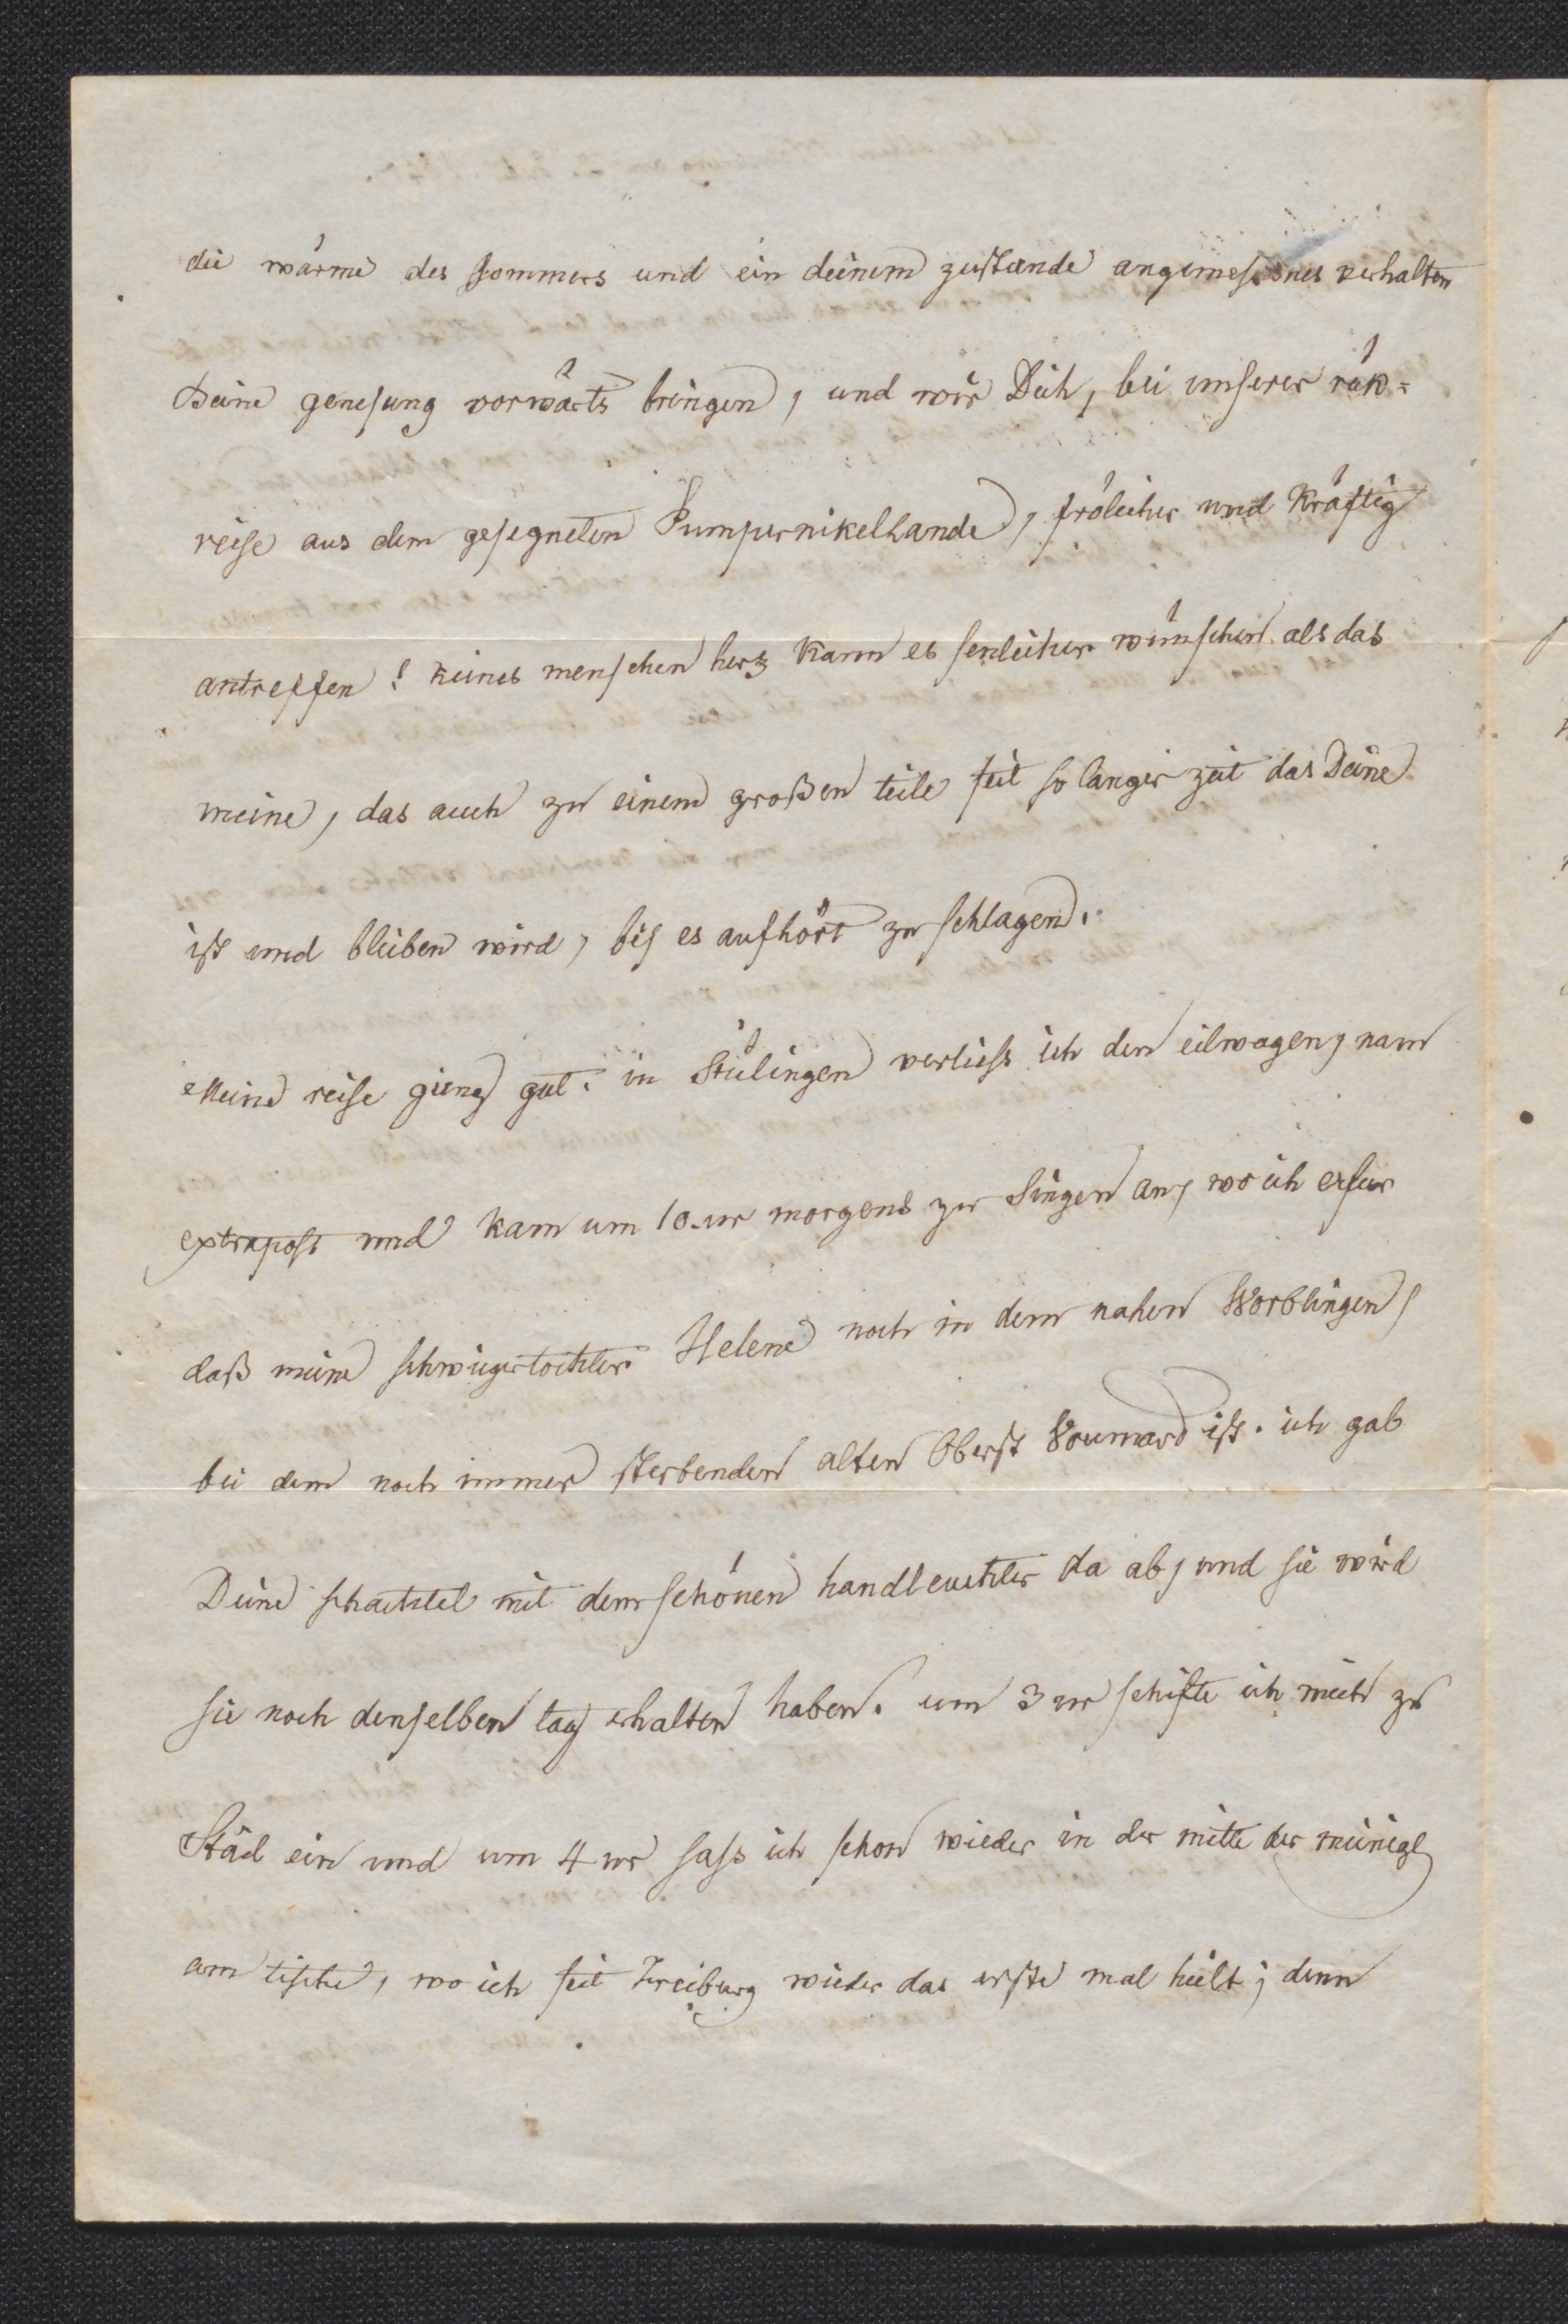 die wärme des sommers und ein deinem zustande angemessenes verhalten
Deine genesung vorwärts bringen, und wir Dich, bei unserer rük=
reise aus dem gesegneten Pumpernikellande, frölicher und kräftig
antreffen! keines menschen herz kann es senlicher wünschen als das
meine, das auch zu einem großen teile seit so langer zeit das Deine
ist und bleiben wird, bis es aufhört zu schlagen.
Meine reise gieng gut. in Stülingen verliess ich den eilwagen, nam
extrapost und kam um 10. ur morgens zu Singen an, wo ich erfur
daß meine schwigertochter Helene noch in dem nahen Worblingen,
bei dem noch immer sterbenden alten Oberst Voumard ist. ich gab
Deine schachtel mit dem schönen handleuchter da ab, und sie wird
sie noch denselben tag erhalten haben. um 3 ur schifte ich mich zu
Stad ein und um 4 ur sass ich schon wieder in der mitte der meinigen
am tische, wo ich seit Freiburg wieder das erste mal hielt; denn